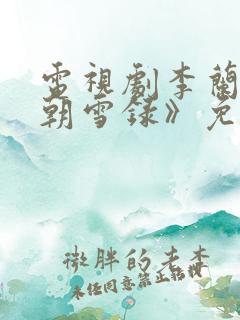 電視劇李蘭
朝雪錄》免
微胖的老李
未經同意禁止轉載